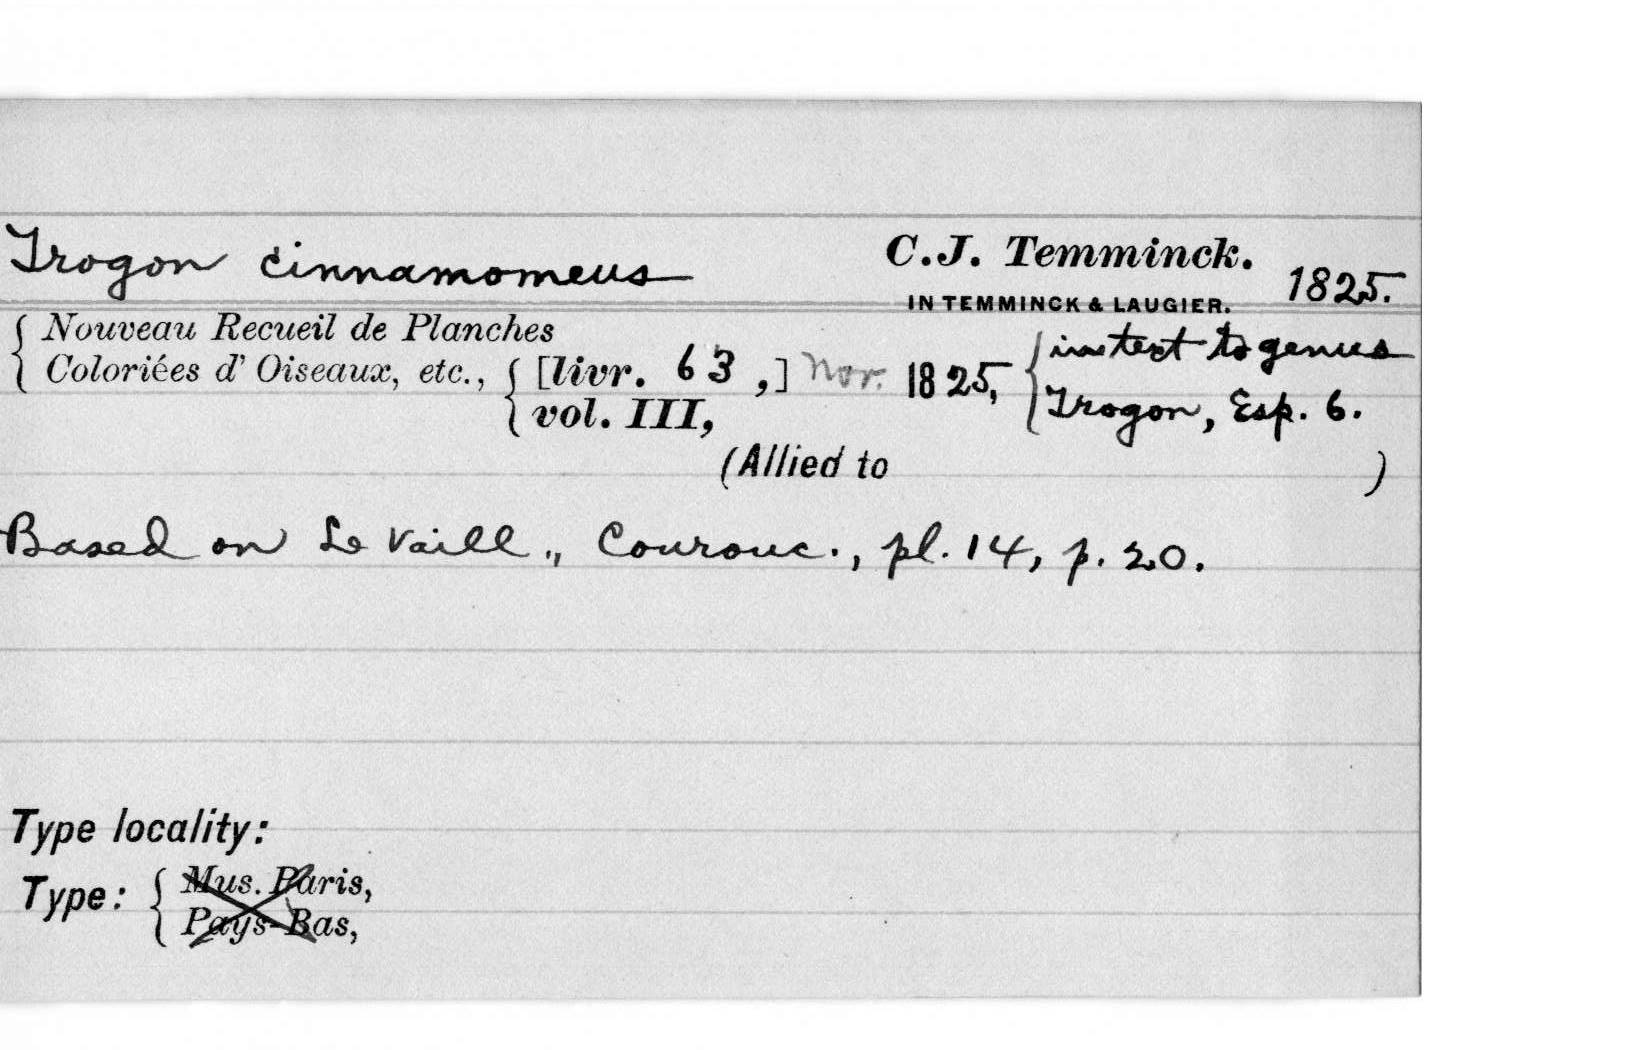 Trogon cinnamomeus C.J. Temminck. 1825.
IN TEMMINCK & LAUGIER.
Nouveau Recueil de Planches
Coloriées d' Oiseaux, etc., [livr. 63,] Nov. 1825, in text to genus
vol. III, Trogon, Esp. 6.
(Allied to )
Based on Le Vaill., Courouc., pl. 14, p. 20.
Type locality:
Type: Mus. Paris,
Pays-Bas,